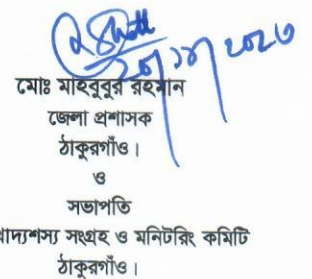 ২০২৩
মোঃ মাহবুবুর রহমান
জেলা প্রশাসক
ঠাকুরগাঁও।
ও
সভাপতি
সংগ্রহ ও মনিটরিং কমিটি
ঠাকুরগাঁও।